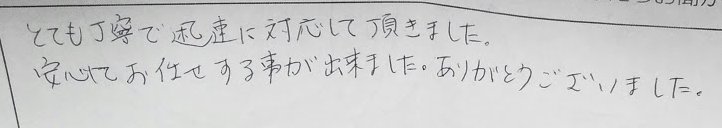 とても丁寧で迅速に対応して頂きました。
安心してお任せする事が出来ました。ありがとうございました。